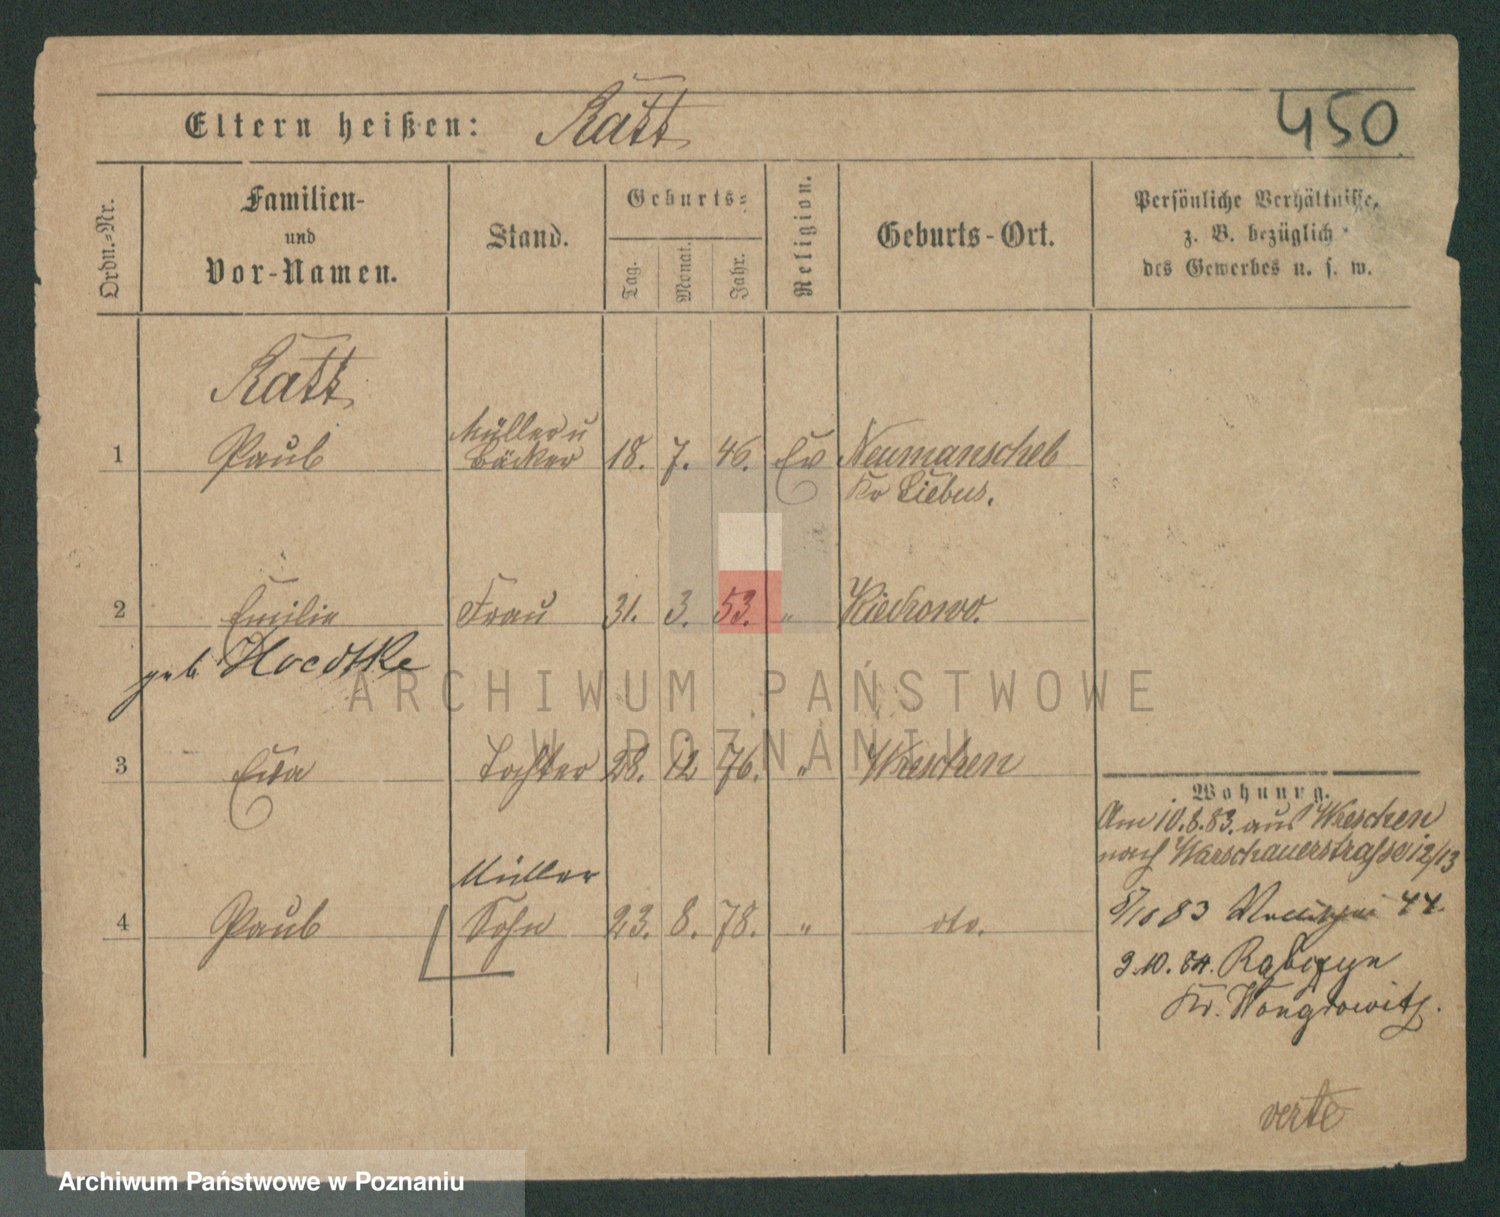 Eltern heißen: Katt
450
Ordn.-Nr.
Familien-
und
Vor-Namen.
Stand.
Geburts-
Tag.
Monat.
Jahr.
Religion.
Geburts-Ort.
Persönliche Verhältnisse,
z. B. bezüglich
des Gewerbes u. s. w.
Katt
1 Paul Müller u Bäcker 18. 7. 46. Ev Neumanscheb
Kr Liebus.
2 Emilie Frau 31. 3. 53. " Kiekowo.
geb
3 Eva Tochter 28. 12 76. " Wreschen
Wohnung.
Am 10.8.83. aus Wreschen
nach Warschauerstraße 12/13
Müller
4 Paul Sohn 23. 8. 78. " dto.
83 44.
3.10.84.
Kr. Wongrowitz.
verte
ARCHIWUM PAŃSTWOWE
W POZNANIU
Archiwum Państwowe w Poznaniu